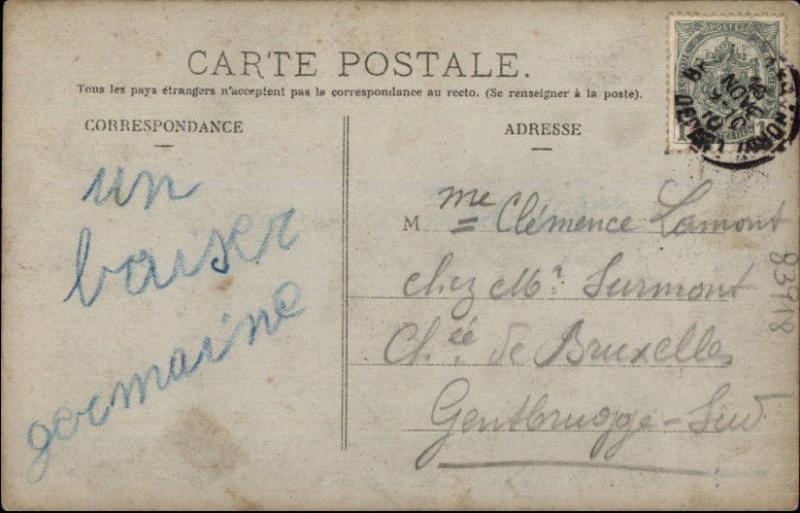 CARTE POSTALE.
Tous les pays étrangers n'acceptent pas la correspondance au recto. (Se renseigner à la poste).
CORRESPONDANCE
un
baiser
germaine
ADRESSE
M me Clémence Lamont
chez Mr. Surmont
Ch.ée de Bruxelles
Gentbrugge-Sud
83718
POSTES
NOV